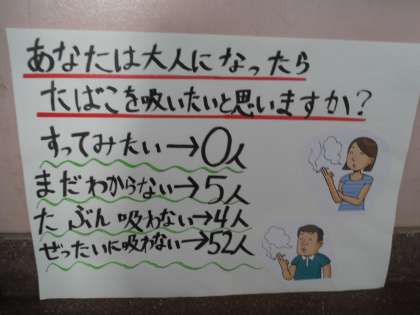 あなたは大人になったら
たばこを吸いたいと思いますか?
すってみたい→0人
まだわからない→5人
たぶん吸わない→4人
ぜったいに吸わない→52人